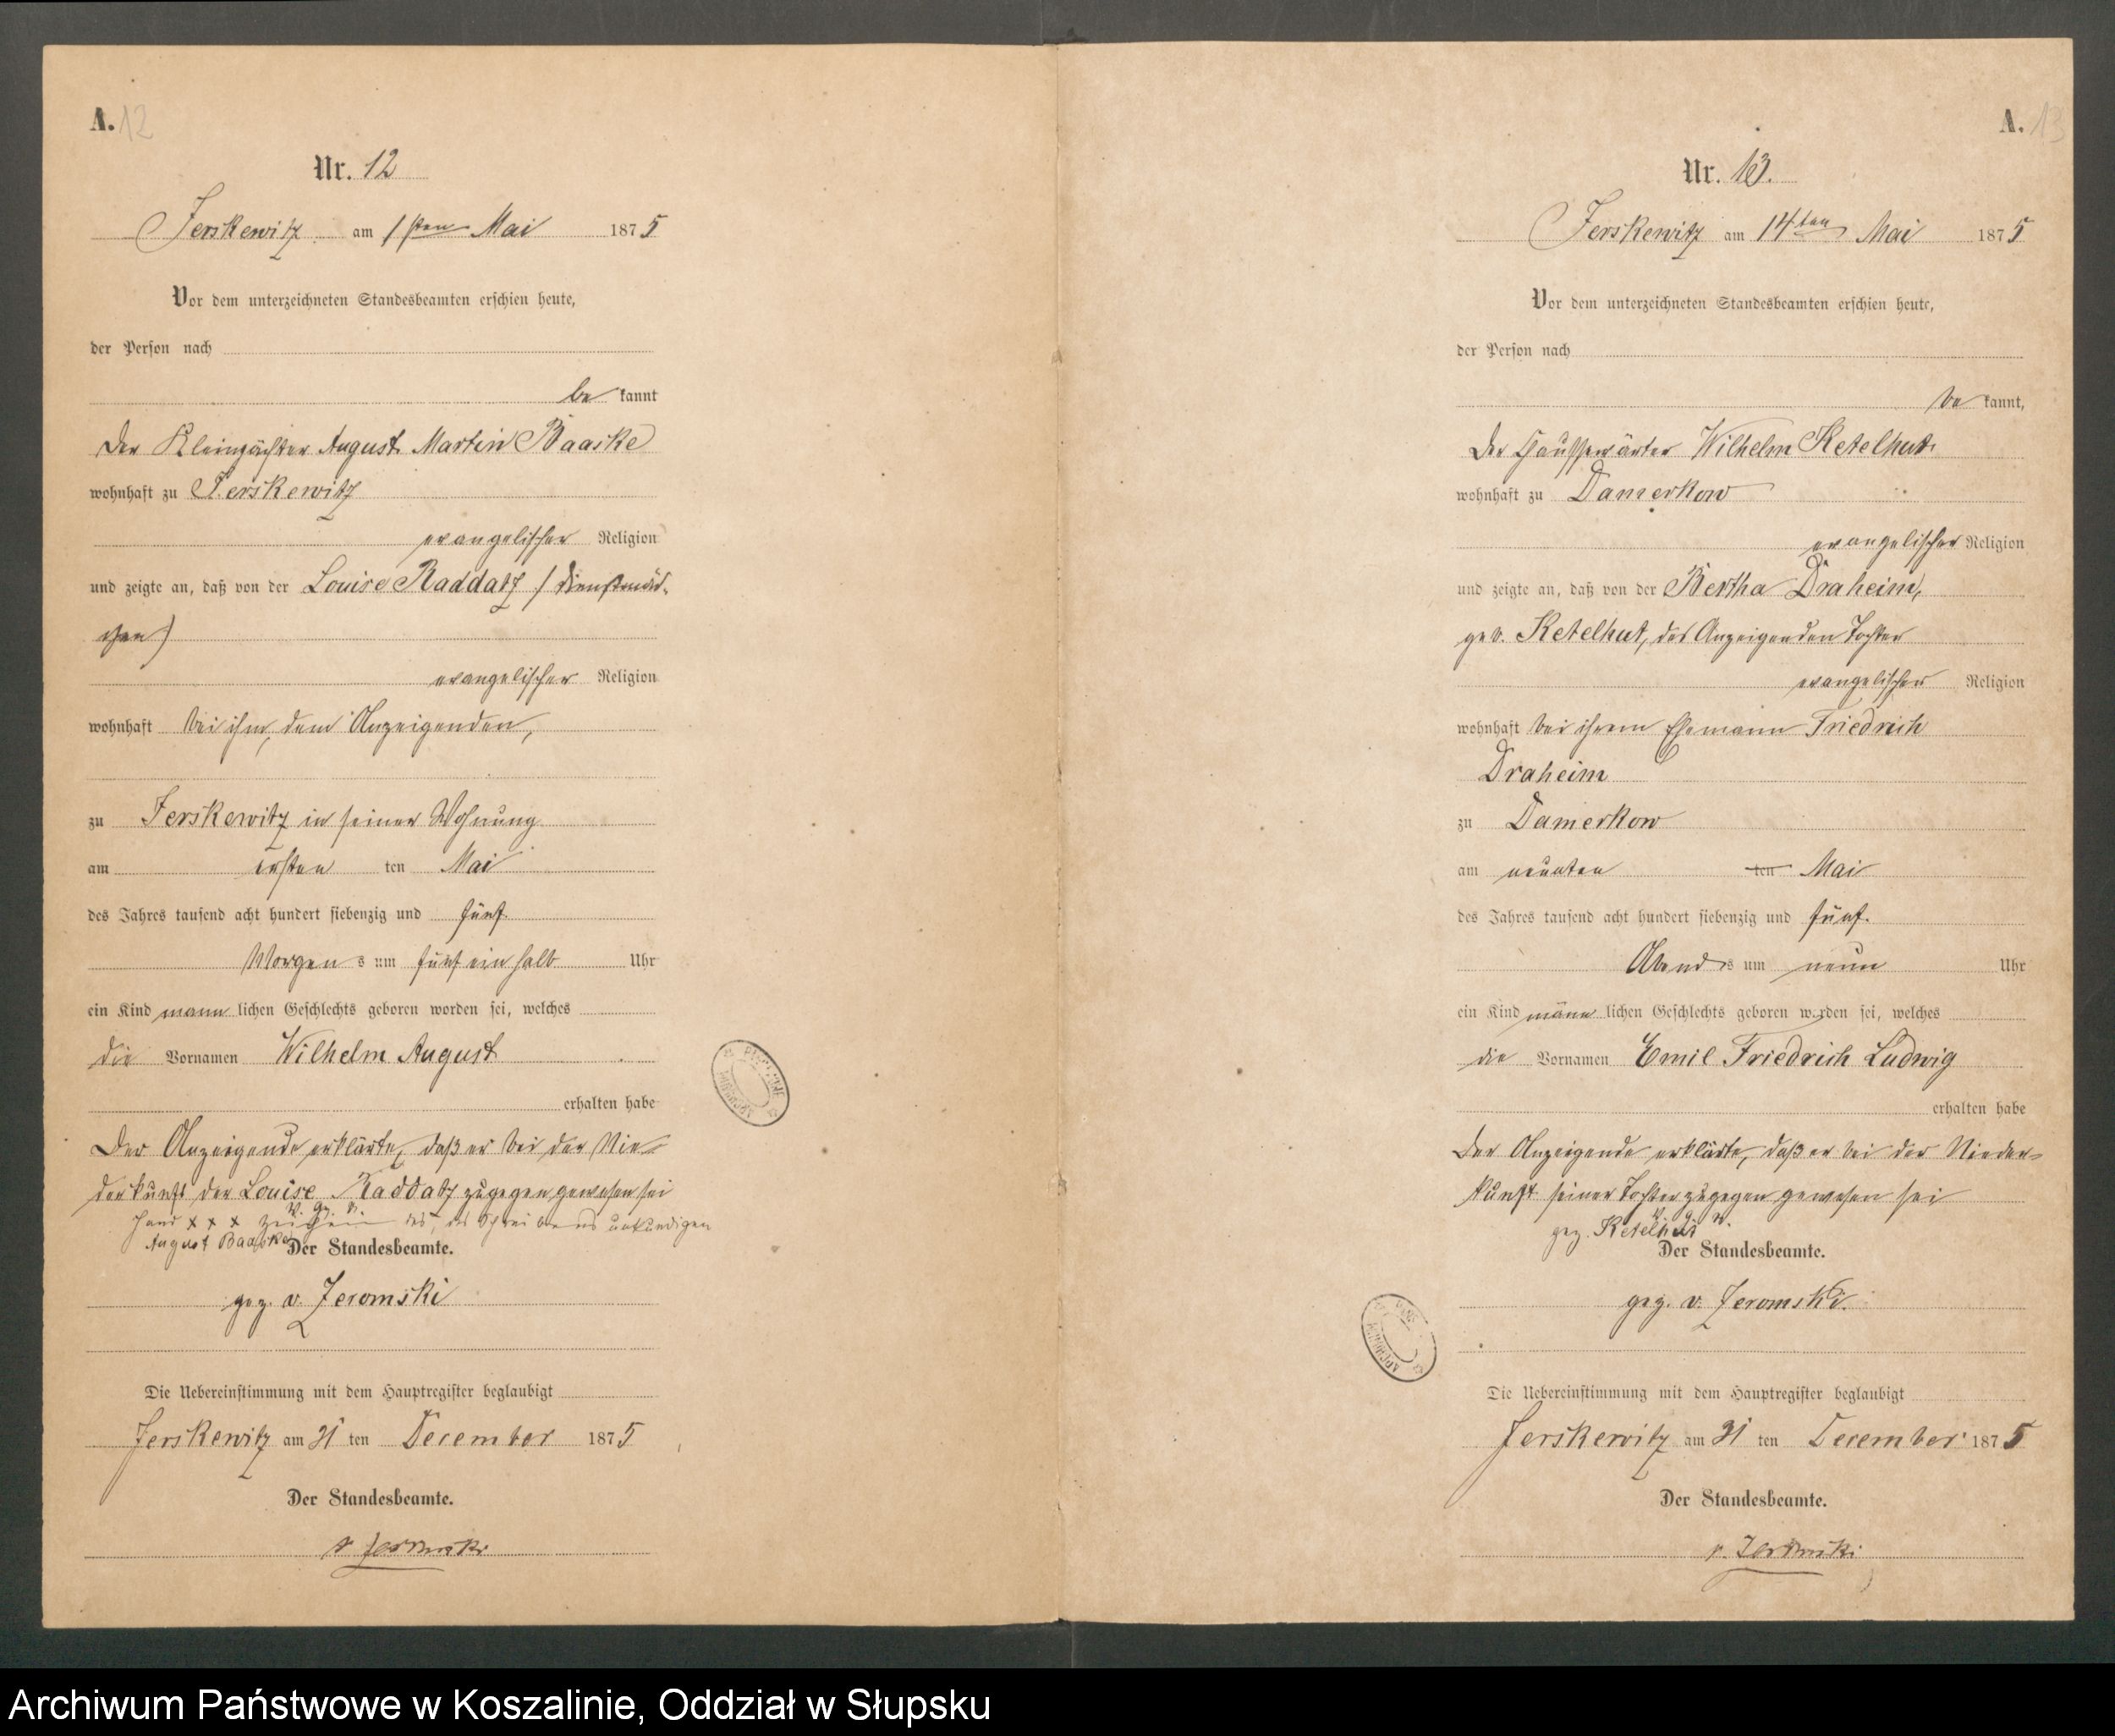 A. 12
Nr. 12
Jerskewitz am 1sten Mai 1875
Vor dem unterzeichneten Standesbeamten erschien heute,
der Person nach
be kannt
Der Kleinpächter August Martin Baaske
wohnhaft zu Jerskewitz
evangelischer Religion
und zeigte an, daß von der Louise Raddatz (Dienstmäd-
chen)
evangelischer Religion
wohnhaft bei ihm, dem Anzeigenden,
zu Jerskewitz in seiner Wohnung
am ersten ten Mai
des Jahres tausend acht hundert siebenzig und fünf
Morgens um fünf ein halb Uhr
ein Kind männlichen Geschlechts geboren worden sei, welches
die Vornamen Wilhelm August
erhalten habe
Der Anzeigende erklärte, daß er bei der Nie-
derkunft der Louise Raddatz zugegen gewesen sei
V. g. u.
Hand x x x zeichen des, des Schreibens unkundigen
August Baaske
Der Standesbeamte.
gez. v. Jeromski
Die Uebereinstimmung mit dem Hauptregister beglaubigt
Jerskewitz am 31 ten December 1875
Der Standesbeamte.
v. Jeromski
A. 13
Nr. 13.
Jerskewitz am 14ten Mai 1875
Vor dem unterzeichneten Standesbeamten erschien heute,
der Person nach
be kannt,
Der Chausseewärter Wilhelm Ketelhut
wohnhaft zu Damerkow
evangelischer Religion
und zeigte an, daß von der Bertha Draheim,
geb. Ketelhut, des Anzeigenden Tochter
evangelischer Religion
wohnhaft bei ihrem Ehemann Friedrich
Draheim
zu Damerkow
am neunten ten Mai
des Jahres tausend acht hundert siebenzig und fünf.
Abends um neun Uhr
ein Kind männlichen Geschlechts geboren worden sei, welches
die Vornamen Emil Friedrich Ludwig
erhalten habe
Der Anzeigende erklärte, daß er bei der Nieder-
kunft seiner Tochter zugegen gewesen sei
V. g. u.
gez. Ketelhut
Der Standesbeamte.
gez. v. Jeromski.
Die Uebereinstimmung mit dem Hauptregister beglaubigt
Jerskewitz am 31 ten December 1875
Der Standesbeamte.
v. Jeromski
Archiwum Państwowe w Koszalinie, Oddział w Słupsku